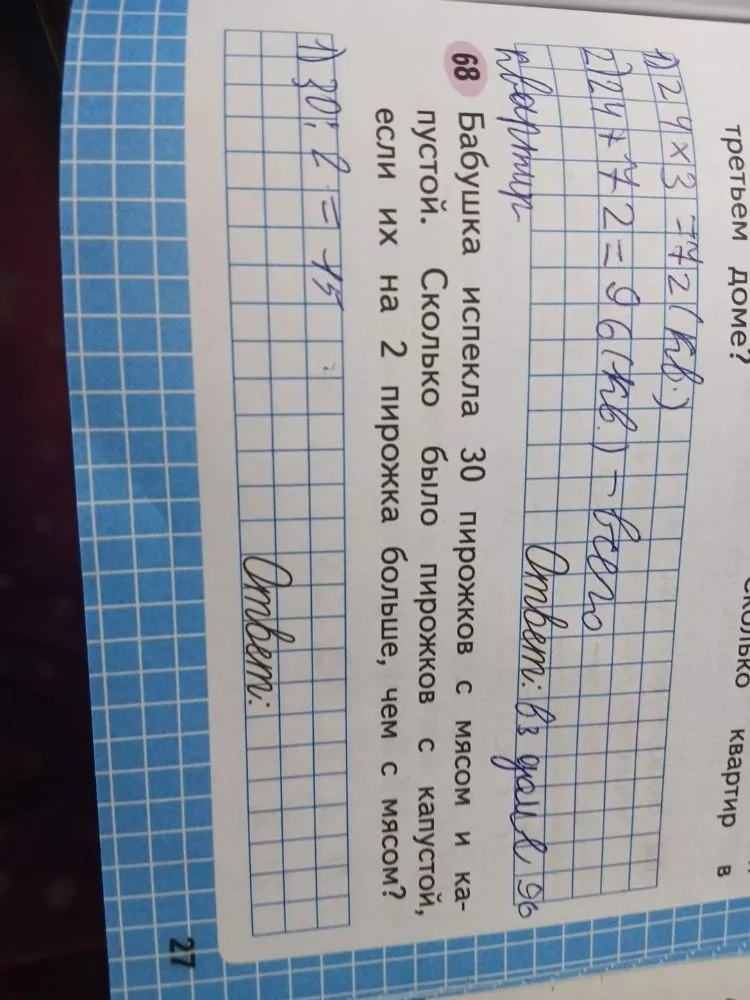 третьем доме?
квартир в
1) 24 × 3 = 72 (кв.)
2) 24 + 72 = 96 (кв.) – всего
Ответ: в 3 доме 96
квартир
68 Бабушка испекла 30 пирожков с мясом и ка-
пустой. Сколько было пирожков с капустой,
если их на 2 пирожка больше, чем с мясом?
1) 30 : 2 = 15
Ответ:
27